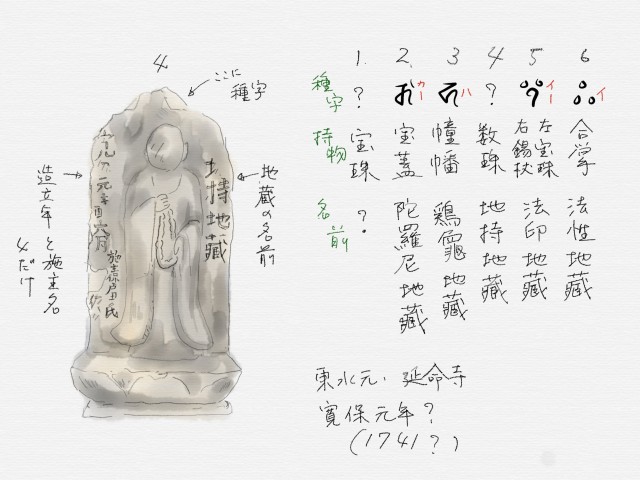 4
ここに
種字
地持地蔵
地蔵の名前
造立年と施主名
4だけ
元年酉六月
1. 2. 3 4 5 6
種字
? カー ハ ? イー イ
持物
宝珠
宝蓋
幢幡
数珠
左宝珠
右錫杖
合掌
名前
?
陀羅尼地蔵
鶏龕地蔵
地持地蔵
法印地蔵
法性地蔵
東水元、延命寺
寛保元年?
(1741?)